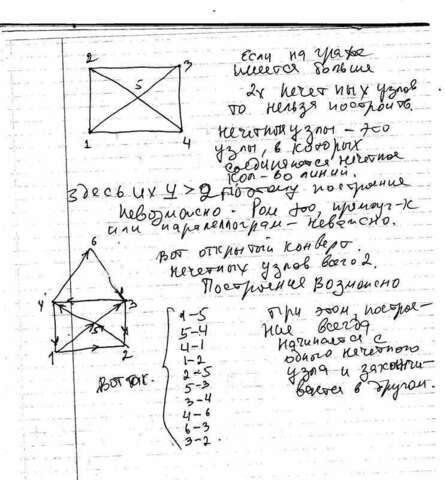 Если на графе
имеется больше
2 3
5
2х нечетных узлов
то нельзя построить.
1 4
Нечетные узлы - это
узлы, в которых
соединяются нечетное
кол-во линий.
Здесь их 4 > 2 поэтому построение
невозможно. Ром это, прямоуг-к
или параллелограм - неважно.
6
Вот открытый конверт.
Нечетных узлов всего 2.
Построение возможно
4 3
5
1 2
Вот так.
1-5
5-4
4-1
1-2
2-5
5-3
3-4
4-6
6-3
3-2.
При этом, построе-
ние всегда
начинается с
одного нечетного
узла и заканчи-
вается в другом.